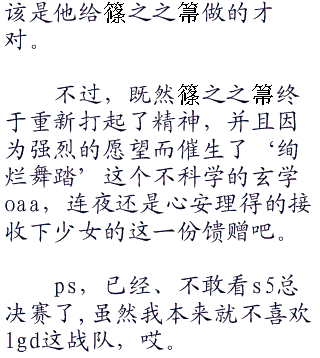 该是他给篠之之箒做的才
对。
不过，既然篠之之箒终
于重新打起了精神，并且因
为强烈的愿望而催生了‘绚
烂舞踏’这个不科学的玄学
oaa，连夜还是心安理得的接
收下少女的这一份馈赠吧。
ps，已经、不敢看s5总
决赛了,虽然我本来就不喜欢
lgd这战队，哎。